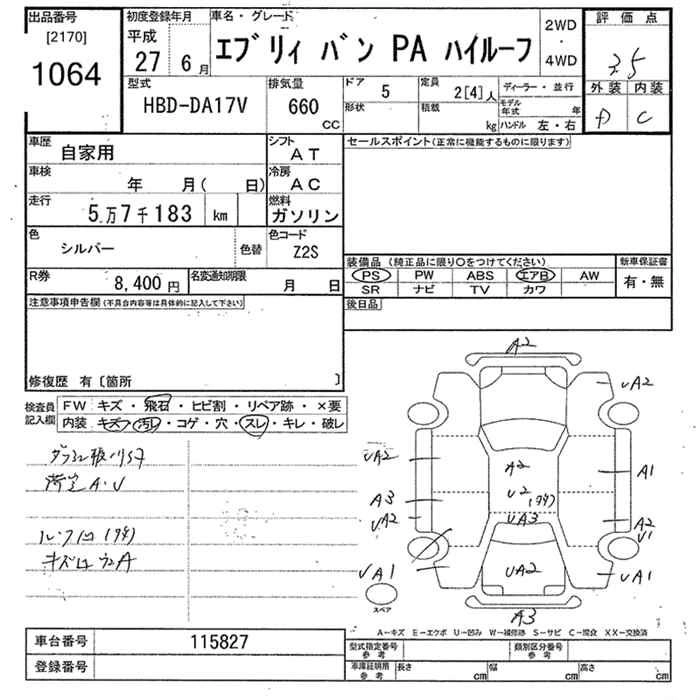 出品番号
[2170]
1064
初度登録年月
平成
27 6月
車名・グレード
エブリィ バン PA ハイルーフ
2WD
・
4WD
評価点
3.5
外装 内装
D C
型式
HBD-DA17V
排気量
660
cc
ドア 5
形状
定員
2[4]人
積載
kg
ディーラー・並行
モデル年式 年
ハンドル 左・右
車歴
自家用
シフト
AT
車検
年 月( 日)
冷房
AC
走行
5万7千183 km
燃料
ガソリン
色
シルバー
色替
色コード
Z2S
R券
8,400円
名変通知期限
月 日
セールスポイント(正常に機能するものに限ります)
装備品(純正品に限り○をつけてください)
PS PW ABS エアB AW
SR ナビ TV カワ
新車保証書
有・無
後日品
注意事項申告欄(不具合内容等は具体的に記入して下さい)
修復歴 有〔箇所 〕
検査員記入欄
FW キズ・飛石・ヒビ割・リペア跡・×要
内装 キズ・汚レ・コゲ・穴・スレ・キレ・破レ
荷室A・U
ルーフ凹(タタキ)
A2
UA2
UA2
A2
A1
A3
U2
UA2
UA3
A2
U1
UA1
UA2
UA1
スペア
A3
A-キズ E-エクボ U-凹み W-補修跡 S-サビ C-腐食 XX-交換済
車台番号
115827
登録番号
型式指定番号
参考
類別区分番号
参考
車庫証明用
参考
長さ cm 幅 cm 高さ cm